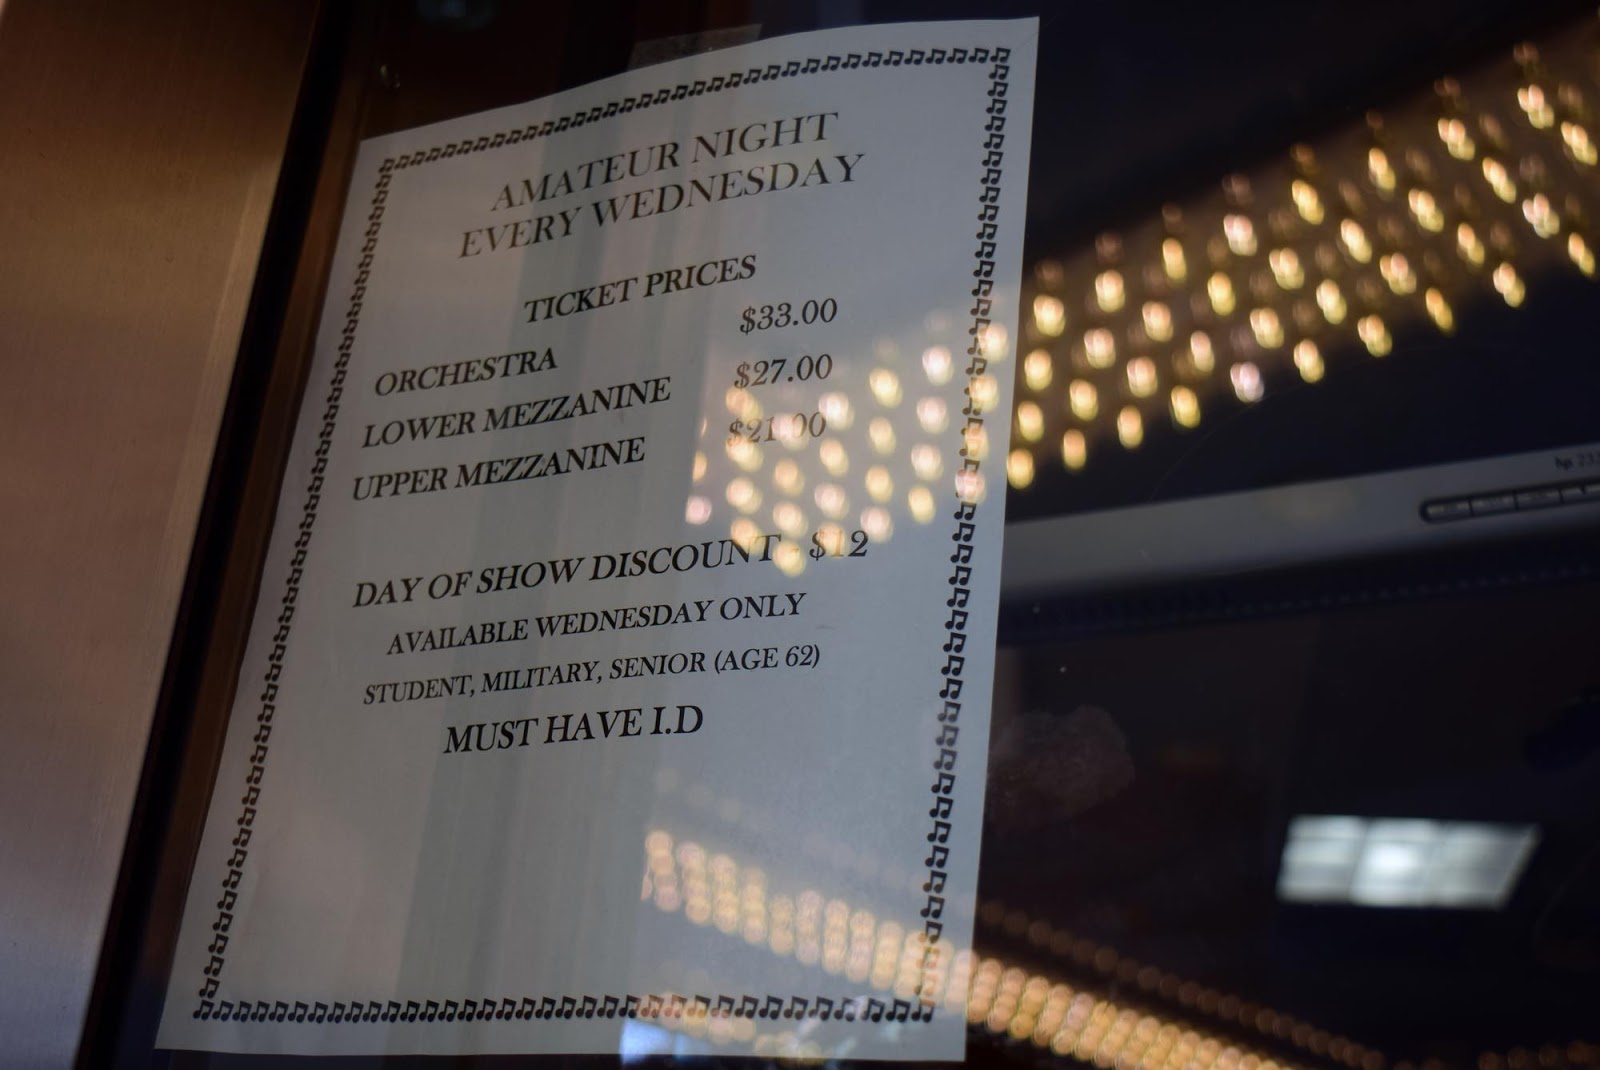 AMATEUR NIGHT
EVERY WEDNESDAY
TICKET PRICES
ORCHESTRA $33.00
LOWER MEZZANINE $27.00
UPPER MEZZANINE $21.00
DAY OF SHOW DISCOUNT - $12
AVAILABLE WEDNESDAY ONLY
STUDENT, MILITARY, SENIOR (AGE 62)
MUST HAVE I.D